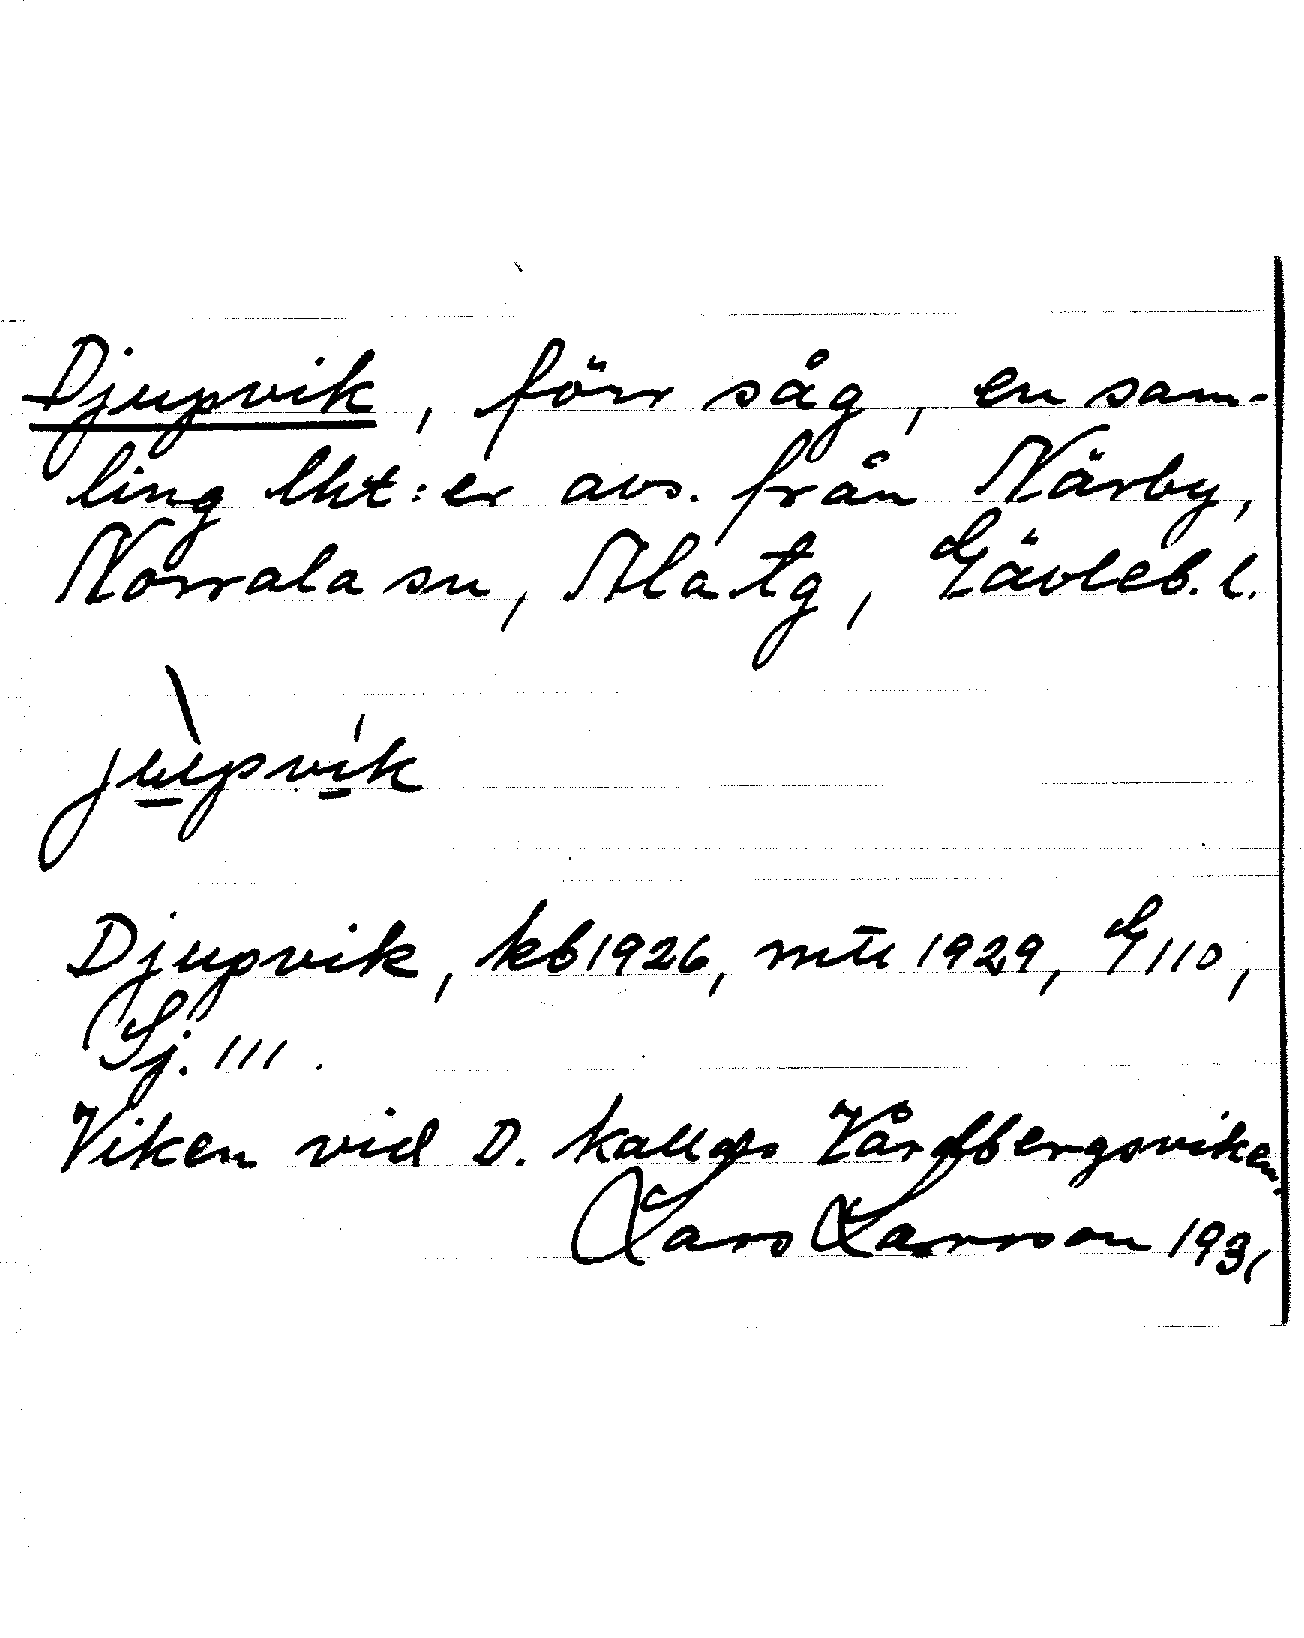 Djupvik, förr såg, en sam-
ling lht:er avs. från Närby,
Norrala sn, Ala tg, Gävleb. l.
jùpvík
Djupvik, kb 1926, mtl 1929, G 110,
Sj. 111.
Viken vid D. kallas Vårdbergsviken.
Lars Larsson 1931